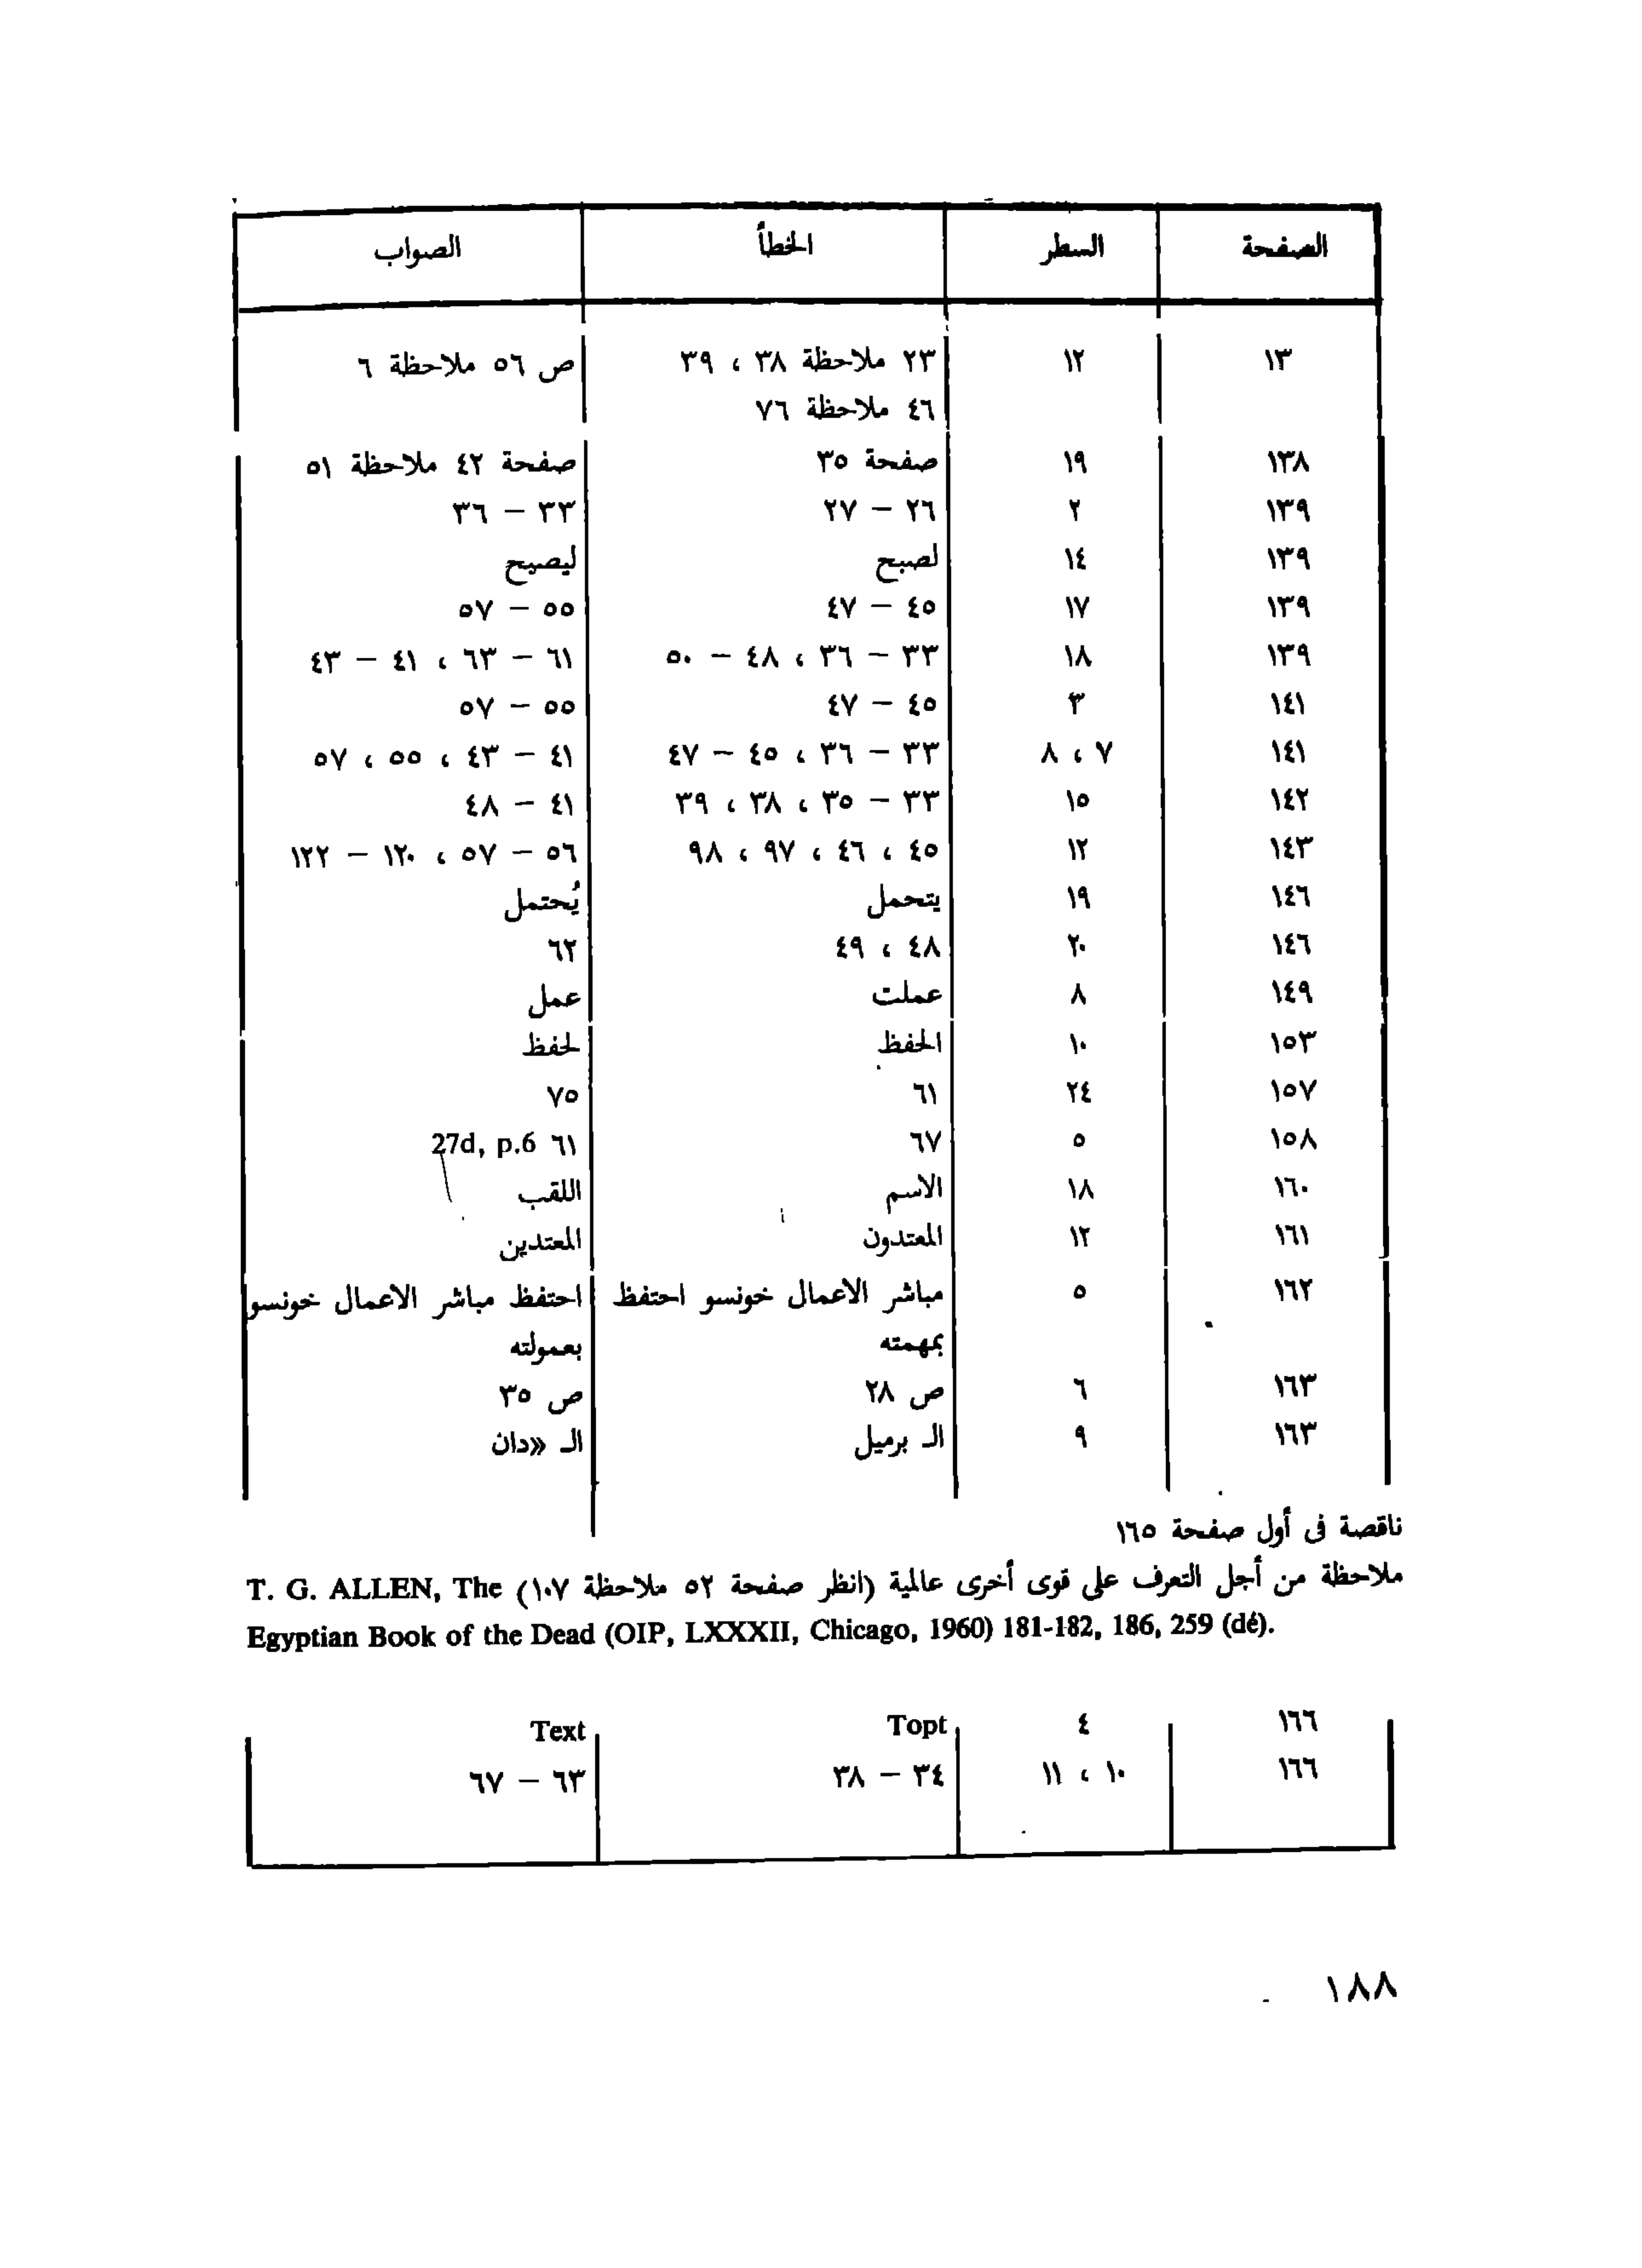 الصفحة السطر الخطأ الصواب
١٣ ١٢ ٢٣ ملاحظة ٣٨ ، ٣٩ ص ٥٦ ملاحظة ٦
٤٦ ملاحظة ٧٦
١٣٨ ١٩ صفحة ٣٥ صفحة ٤٢ ملاحظة ٥١
١٣٩ ٢ ٢٦ – ٢٧ ٣٣ – ٣٦
١٣٩ ١٤ لصبح ليصبح
١٣٩ ١٧ ٤٥ – ٤٧ ٥٥ – ٥٧
١٣٩ ١٨ ٣٣ – ٣٦ ، ٤٨ – ٥٠ ٦١ – ٦٣ ، ٤١ – ٤٣
١٤١ ٣ ٤٥ – ٤٧ ٥٥ – ٥٧
١٤١ ٧ ، ٨ ٣٣ – ٣٦ ، ٤٥ – ٤٧ ٤١ – ٤٣ ، ٥٥ ، ٥٧
١٤٢ ١٥ ٣٣ – ٣٥ ، ٣٨ ، ٣٩ ٤١ – ٤٨
١٤٣ ١٢ ٤٥ ، ٤٦ ، ٩٧ ، ٩٨ ٥٦ – ٥٧ ، ١٢٠ – ١٢٢
١٤٦ ١٩ يتحمل يُحتمل
١٤٦ ٢٠ ٤٨ ، ٤٩ ٦٢
١٤٩ ٨ عملت عمل
١٥٣ ١٠ الحفظ لحفظ
١٥٧ ٢٤ ٦١ ٧٥
١٥٨ ٥ ٦٧ ٦١ 27d, p.6
١٦٠ ١٨ الاسم اللقب
١٦١ ١٢ المعتدون المعتدين
١٦٢ ٥ مباشر الاعمال خونسو احتفظ احتفظ مباشر الاعمال خونسو
بمهمته بعمولته
١٦٣ ٦ ص ٢٨ ص ٣٥
١٦٣ ٩ الـ برميل الـ «دان
ناقصة فى أول صفحة ١٦٥
ملاحظة من أجل التعرف على قوى أخرى عالمية (انظر صفحة ٥٢ ملاحظة ١٠٧) T. G. ALLEN, The
Egyptian Book of the Dead (OIP, LXXXII, Chicago, 1960) 181-182, 186, 259 (dé).
١٦٦ ٤ Topt Text
١٦٦ ١٠ ، ١١ ٣٤ – ٣٨ ٦٣ – ٦٧
١٨٨